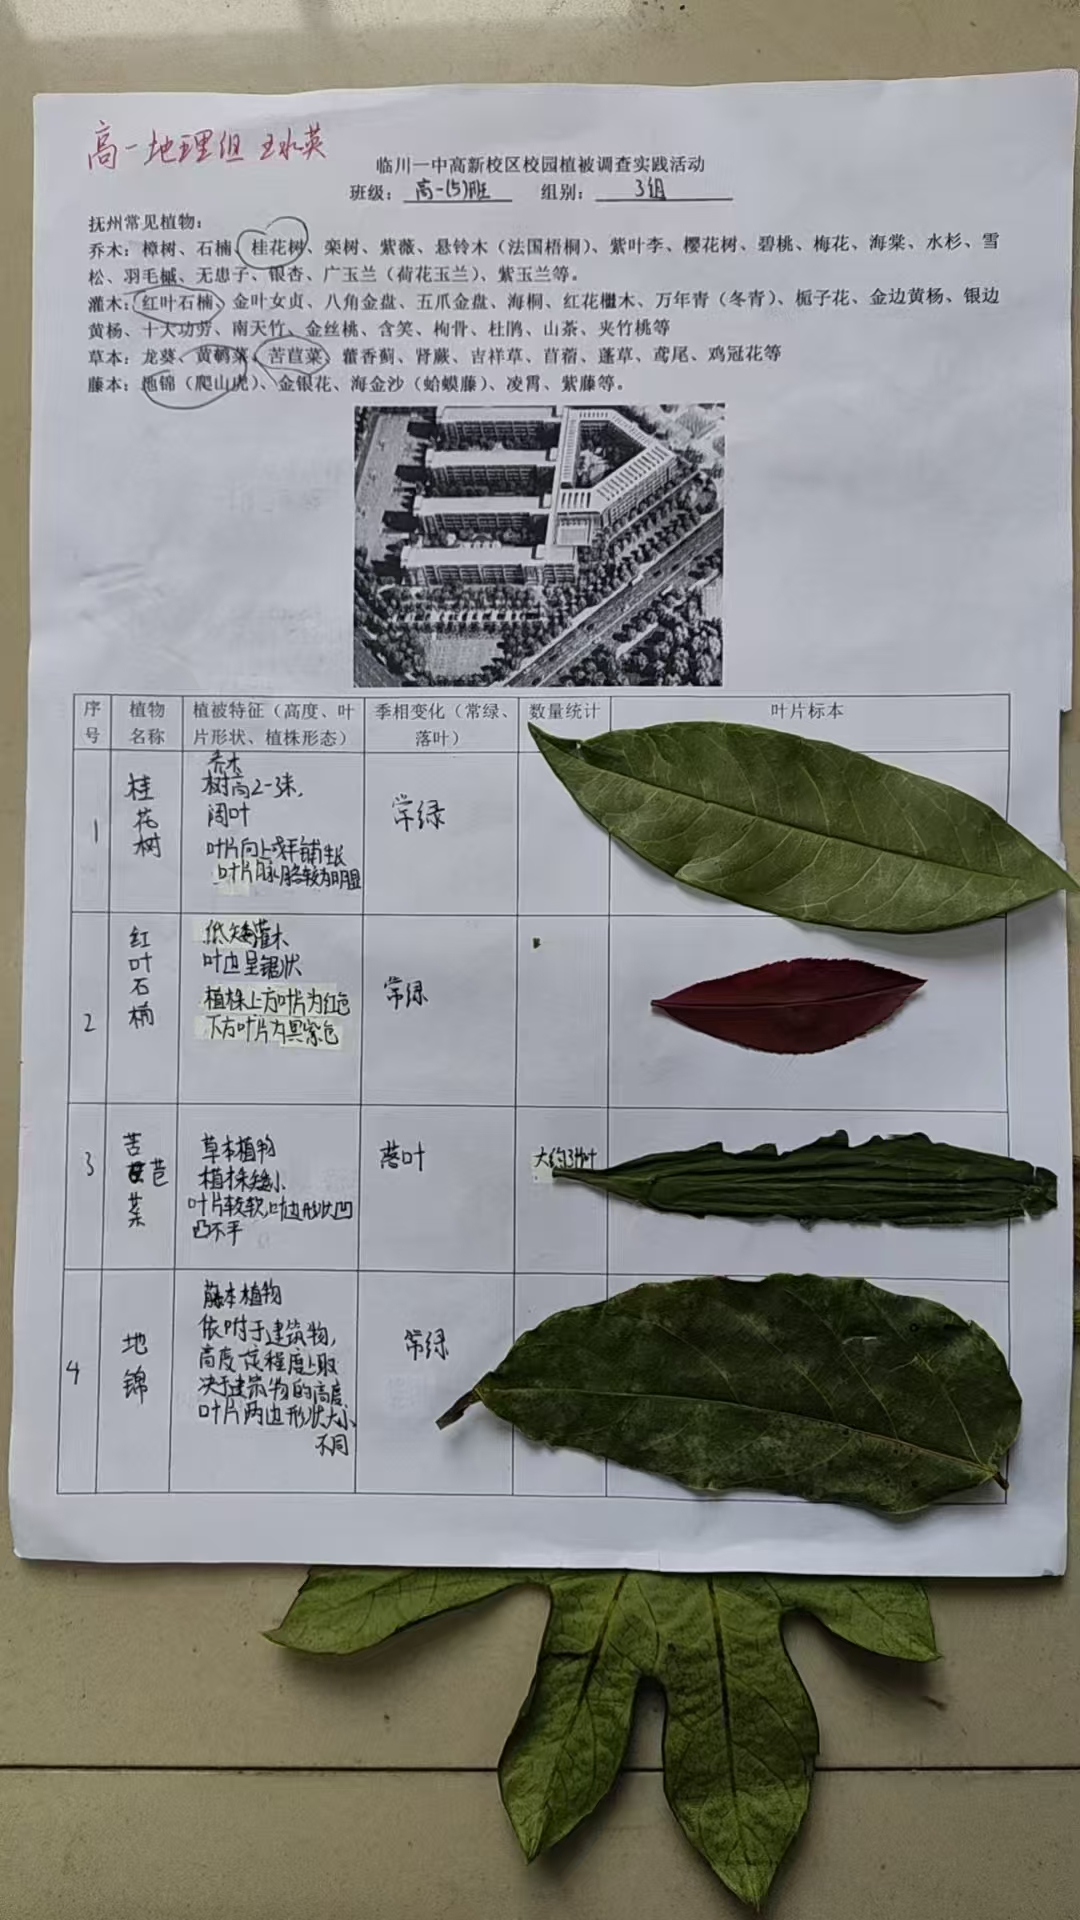 高一地理组 王水英
临川一中高新校区校园植被调查实践活动
班级：高一(5)班 组别：3组
抚州常见植物：
乔木：樟树、石楠、桂花树、栾树、紫薇、悬铃木（法国梧桐）、紫叶李、樱花树、碧桃、梅花、海棠、水杉、雪
松、羽毛槭、无患子、银杏、广玉兰（荷花玉兰）、紫玉兰等。
灌木：红叶石楠、金叶女贞、八角金盘、五爪金盘、海桐、红花檵木、万年青（冬青）、栀子花、金边黄杨、银边
黄杨、十大功劳、南天竹、金丝桃、含笑、枸骨、杜鹃、山茶、夹竹桃等
草本：龙葵、黄鹌菜、苦苣菜、藿香蓟、肾蕨、吉祥草、苜蓿、蓬草、鸢尾、鸡冠花等
藤本：地锦（爬山虎）、金银花、海金沙（蛤蟆藤）、凌霄、紫藤等。
序号 植物名称 植被特征（高度、叶片形状、植株形态） 季相变化（常绿、落叶） 数量统计 叶片标本
1 桂花树
乔木
树高2-3米，
阔叶
叶片向上或平铺生长
叶片脉络较为明显
常绿
2 红叶石楠
低矮灌木
叶边呈锯状
植株上方叶片为红色
下方叶片为黑紫色
常绿
3 苦苣菜
草本植物
植株矮小
叶片较软，叶边形状凹
凸不平
落叶
大约13片叶
4 地锦
藤本植物
依附于建筑物，
高度一定程度上取
决于建筑物的高度
叶片两边形状大小
不同
常绿